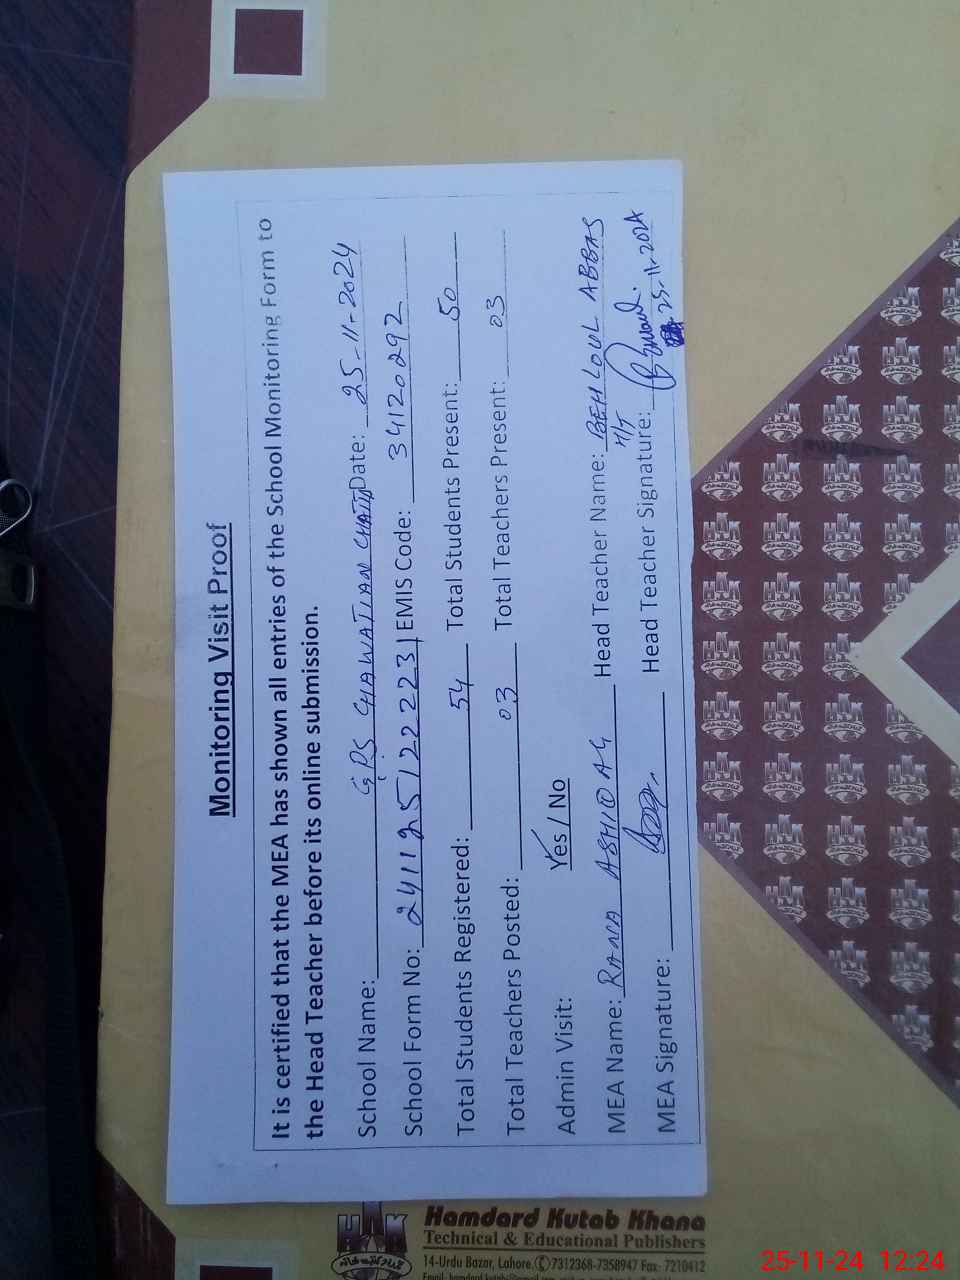 Monitoring Visit Proof
It is certified that the MEA has shown all entries of the School Monitoring Form to
the Head Teacher before its online submission.
School Name: GPS CHAWATIAN CHATTI Date: 25-11-2024
School Form No: 241125122231 EMIS Code: 34120292
Total Students Registered: 54 Total Students Present: 50
Total Teachers Posted: 03 Total Teachers Present: 03
Admin Visit: Yes / No
MEA Name: RANA Head Teacher Name: BEHLOUL ABBAS
MEA Signature: Head Teacher Signature:
25-11-2024
HAK
Hamdard Kutab Khana
Technical & Educational Publishers
14-Urdu Bazar, Lahore. 7312368-7358947 Fax: 7210412
25-11-24 12:24